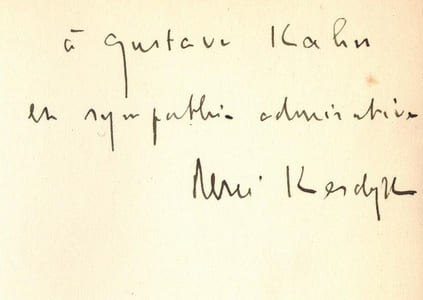 à Gustave Kahn
en sympathie admirative
René Kerdyk